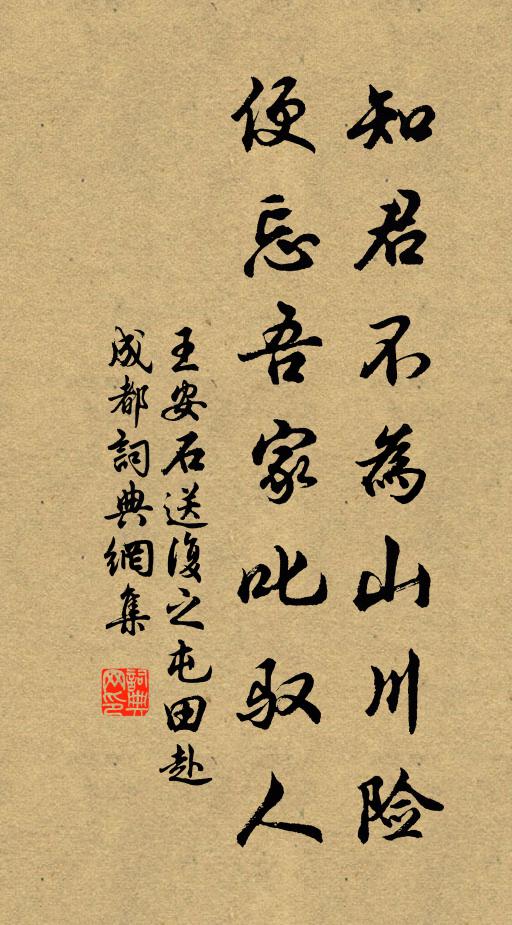 知君不為山川险
便忘吾家叱驭人
王安石送復之屯田赴
成都詞典網集
詞典
网印